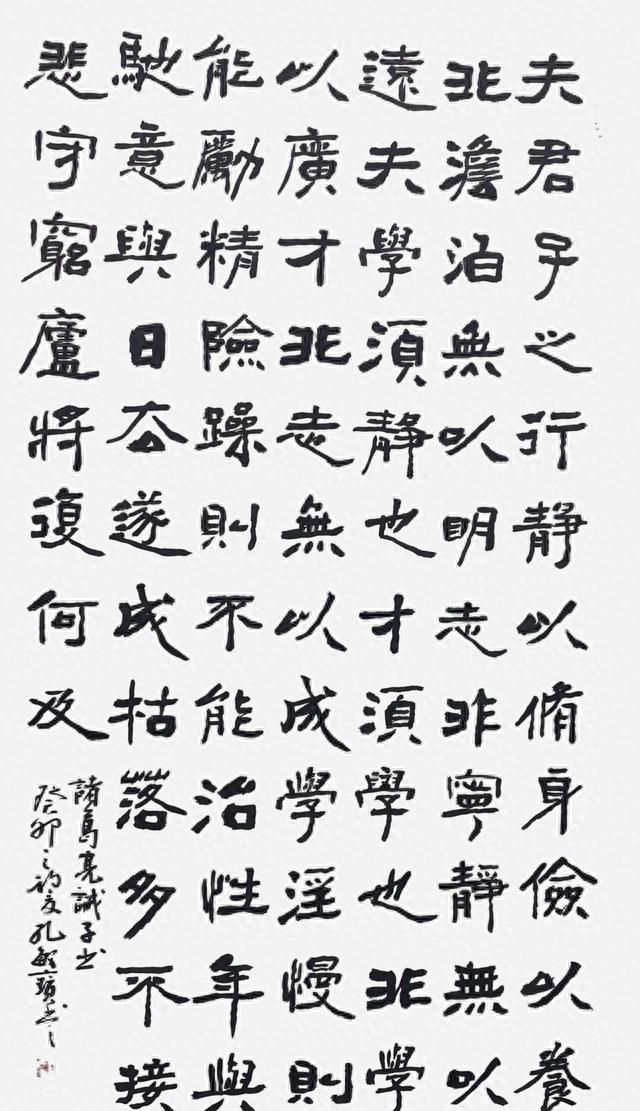 夫君子之行靜以脩身儉以養
非澹泊無以明志非寧靜無以
遠夫學須靜也才須學也非學
以廣才非志無以成學淫慢則
能勵精險躁則不能治性年與
馳意與日去遂成枯落多不接
悲守窮廬將復何及
諸葛亮誡子書
癸卯之初夏孔書